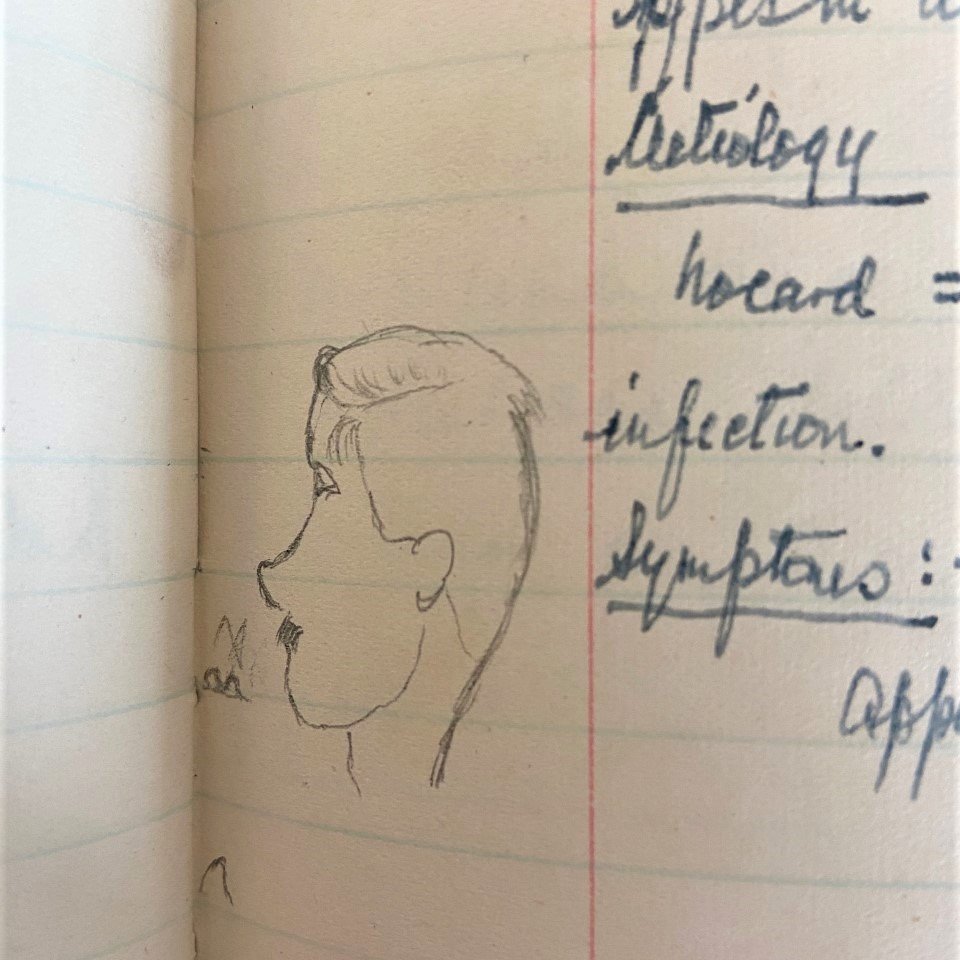 Aetiology
nocard =
infection.
Symptoms :
app